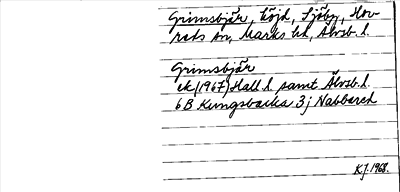 Grimsbjär, höjd, Sjöby, Hor-
reds sn, Marks hd, Älvsb. l.
Grimsbjär
ek (1967) Hall. l. samt Älvsb. l.
6B Kungsbacka 3j Nabbared
K.J. 1968.